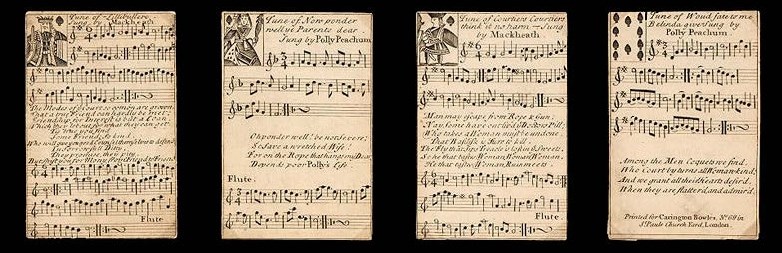 Tune of Lillibullero
Sung by Mackheath
The Modes of of
that a true Friend can hardly be met;
Friendship for Interest is but a Loan
Which they let out for what they can get.
Tis true you find
Some Friends so kind
Who will give you good Counsel themselves to defend
In
They promise, they pity
But shift for Money from Friend to Friend
Flute
Tune of Now ponder
well ye Parents dear
Sung by Polly Peachum
Oh ponder well! be not severe;
So save a wretched Wife!
For on the Rope that hangs my Dear,
Depends poor Polly's Life
Flute.
Tune of Courtiers Courtiers
think it no harm Sung
by Mackheath
Man may escape from Rope & Gun;
Nay, some have outliv'd & Doctors Pill;
Who takes a Woman must be undone
That Basilisk is sure to kill.
The Fly that sips Treacle is lost in & Sweets,
So he that tastes Woman, Woman, Woman,
He that tastes Woman, Ruin meets.
Flute.
Tune of Woud fate to me
Belinda give Sung by
Polly Peachum.
Among the Men Coquets we find,
Who Court by turns all Woman-kind;
And we grant all their Hearts desir'd,
When they are flatter'd, and admir'd.
Printed for Carington Bowles, No. 69 in
St. Pauls Church Yard, London.